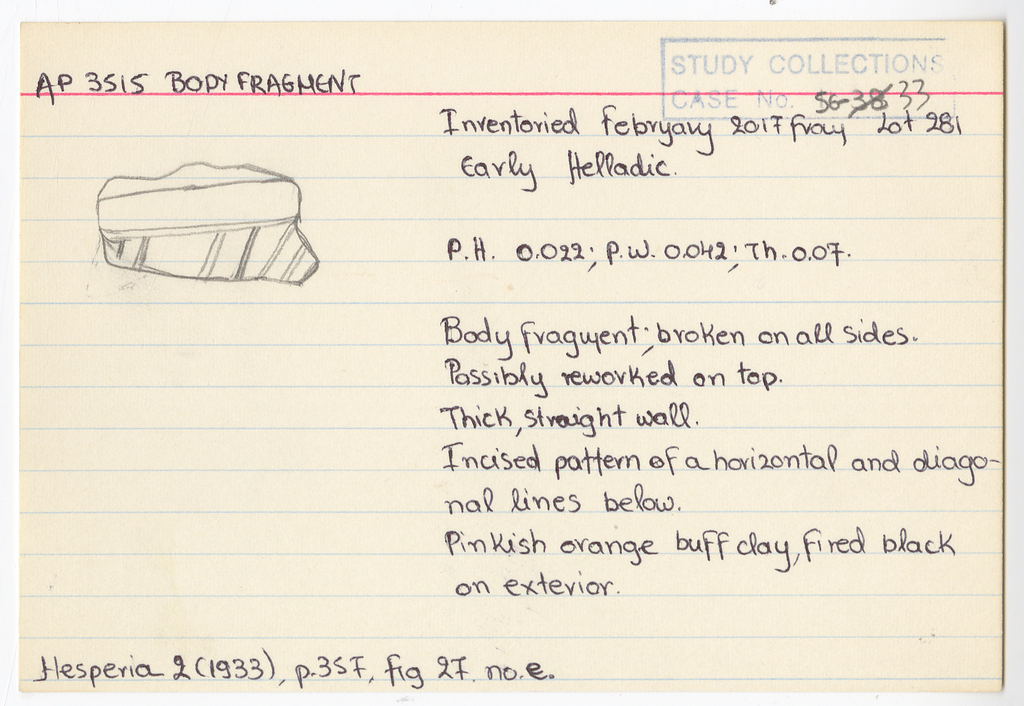 AP 3515 BODY FRAGMENT
STUDY COLLECTIONS
CASE No. 56-38 33
Inventoried February 2017 from Lot 281
Early Helladic.
P.H. 0.022; P.W. 0.042; Th. 0.07.
Body fragment; broken on all sides.
Possibly reworked on top.
Thick, straight wall.
Incised pattern of a horizontal and diago-
nal lines below.
Pinkish orange buff clay, fired black
on exterior.
Hesperia 2 (1933), p.357, fig 27. no.e.